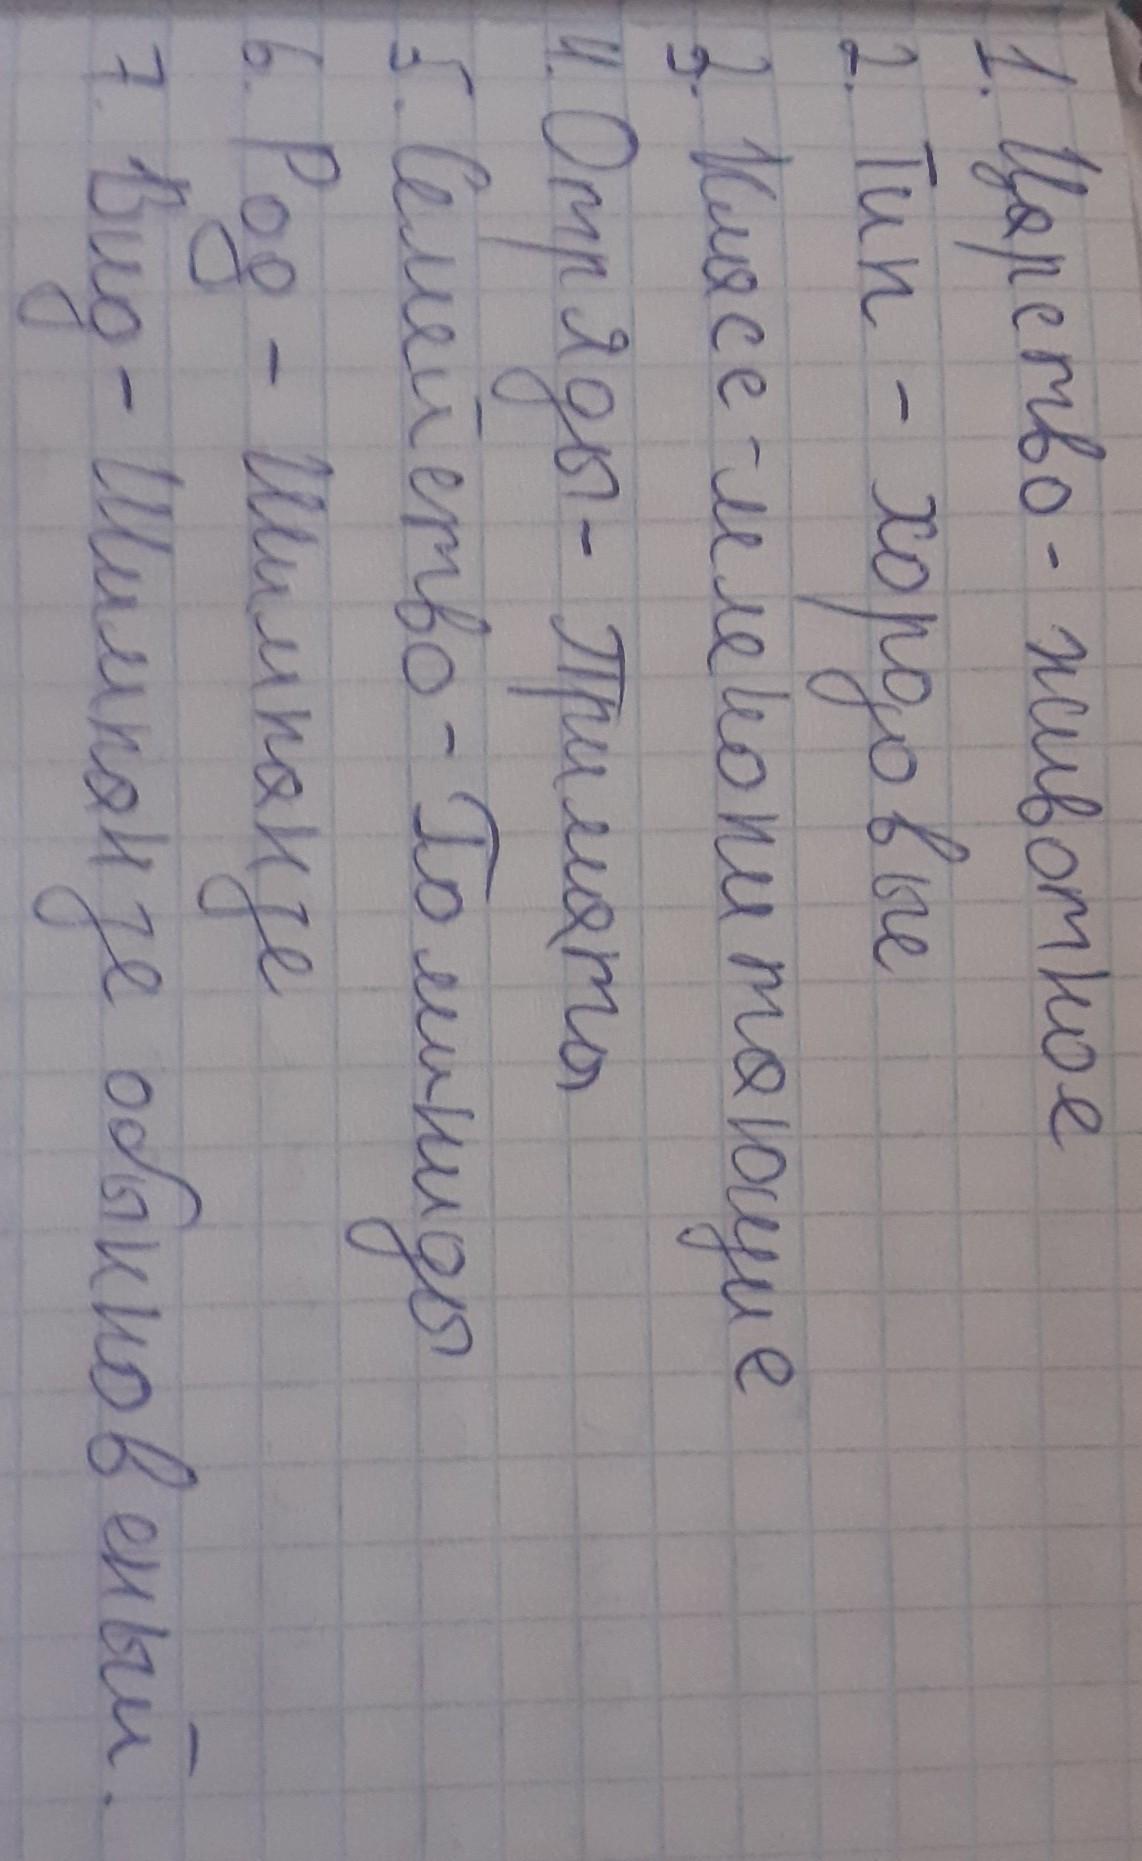 1. Царство - животное
2. Тип - хордовые
3. Класс - млекопитающие
4. Отряды - Приматы
5. Семейство - Гоминиды
6. Род - Шимпанзе
7. Вид - Шимпанзе обыкновеный.